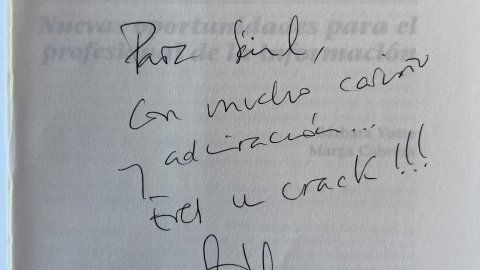 Nuevas oportunidades para el
profesional de la información
Para
Con mucho cariño
y admiración...
Yuste
Marga
Eres un crack!!!